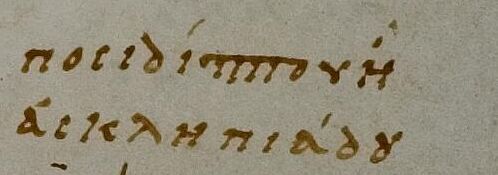 ποσιδίππου ἢ
ἀσκληπιάδου